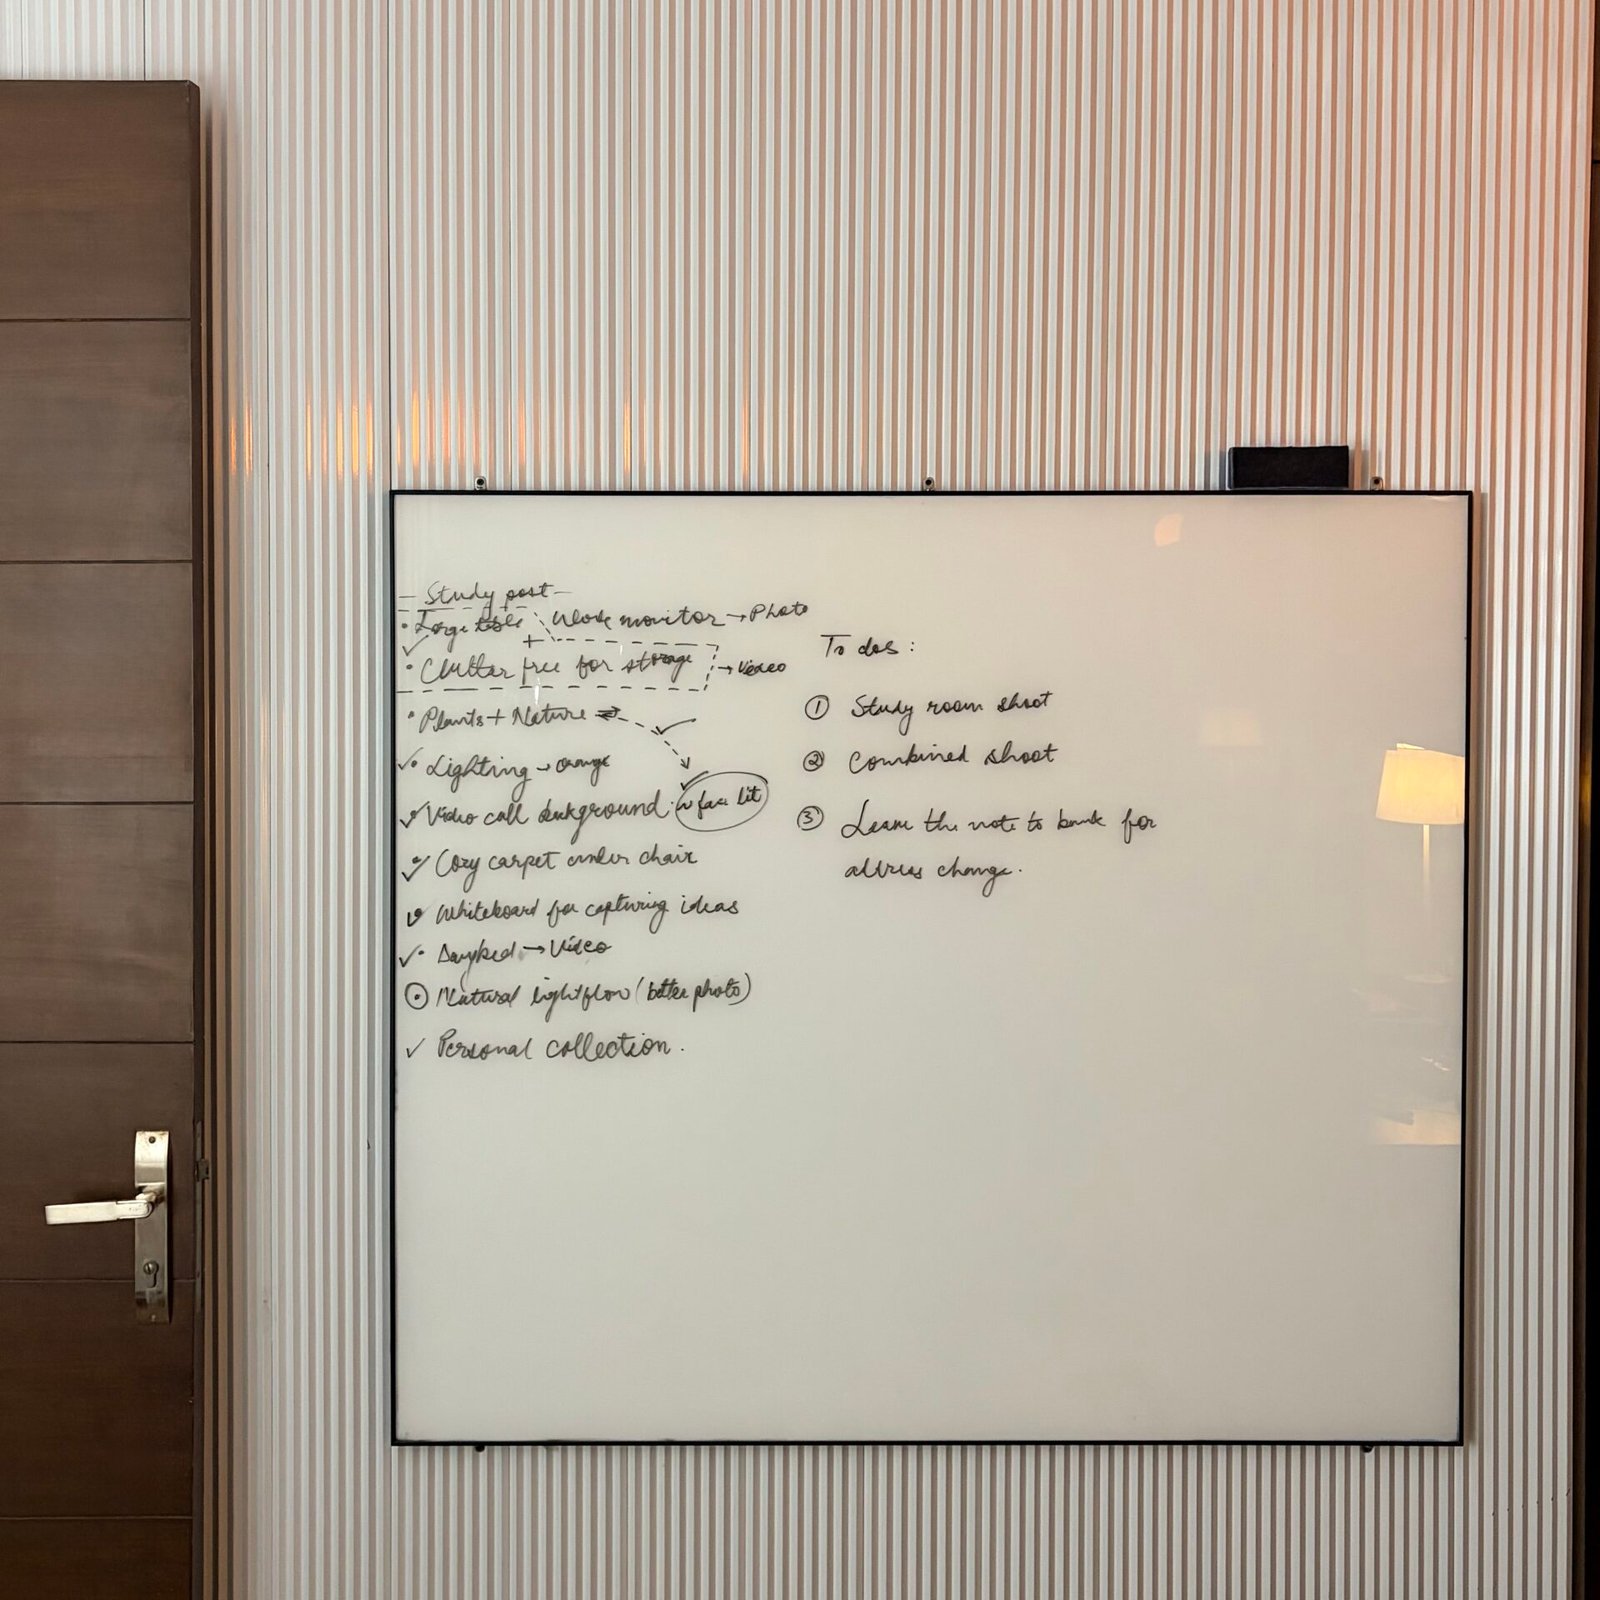 — Study post —
• Large table work monitor → Photo
+
• Clutter free for storage → Video
• Plants + Nature
✓• Lighting → orange
✓• Video call background face lit
✓• Cozy carpet under chair
✓• Whiteboard for capturing ideas
✓• Daybed → Video
• Natural lightflow (better photo)
✓ Personal collection.
To dos:
① Study room shoot
② Combined shoot
③ Leave the note to bank for
address change.